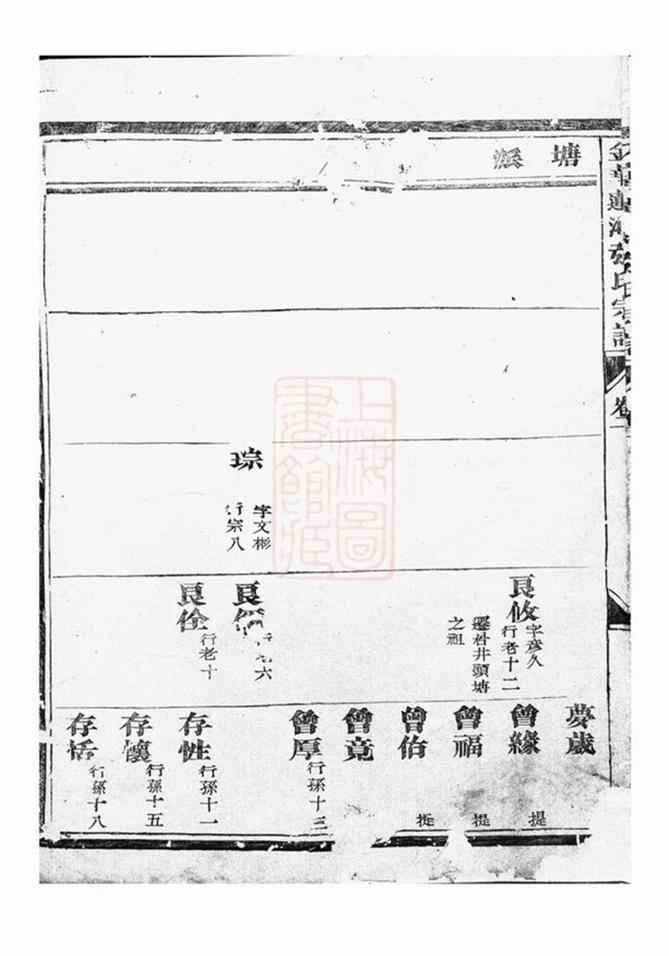 塘派
琮
字文彬
行宗八
良攸
字彥久
行老十二
遷井頭塘
之祖
良
六
良佺
行老十
夢歲
曾緣
提
曾福
提
曾伯
提
曾竟
曾厚
行孫十三
存性
行孫十一
存懷
行孫十五
存恬
行孫十八
氏宗譜
卷
上海圖書館藏